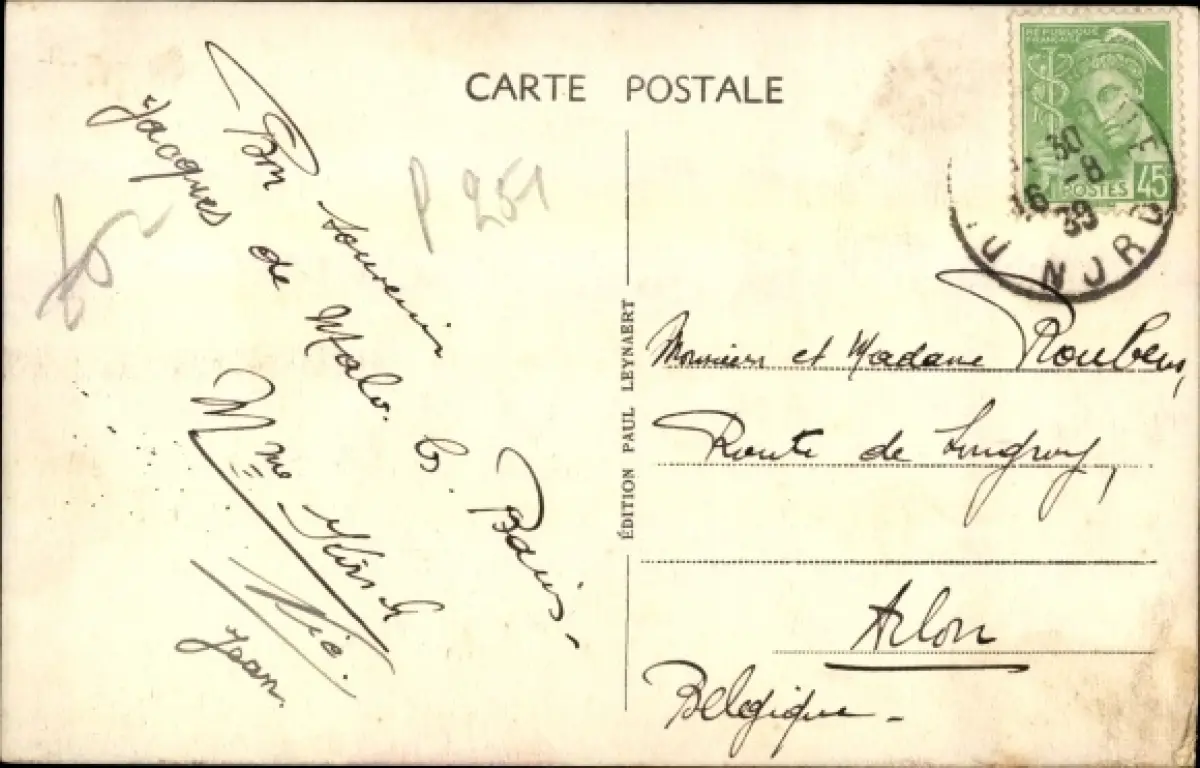 CARTE POSTALE
RÉPUBLIQUE
FRANÇAISE
POSTES 45
30
16 -8
39
DU NORD
P 251
Bon souvenir
de Malo. les Bains.
Mme
Jacques
Jean
ÉDITION PAUL LEYNAERT
Monsieur et Madame Roubens,
Route de Longwy,
Arlon
Belgique -